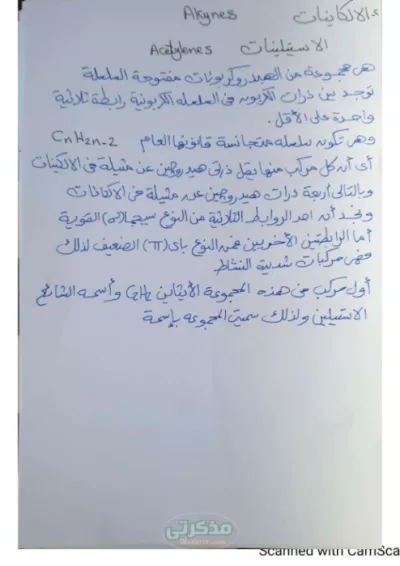 الالكاينات Akynes
الاستيلينات Acetylenes
هى مجموعة من الهيدروكربونات مفتوحة السلسلة
توجد بين ذرات الكربون فى السلسله الكربونية رابطة ثلاثية
واحدة على الأقل.
وهى تكون سلسله متجانسة قانونها العام CnH2n-2
أى أن كل مركب منها يقل ذرتى هيدروجين عن مثيلة فى الالكينات
وبالتالى أربعة ذرات هيدروجين عن مثيلة من الالكانات
ونجد أن احد الروابط الثلاثية من النوع سيجما (σ) القوية
أما الرابطتين الأخريين فمن النوع باى (π) الضعيف لذلك
فهى مركبات شديدة النشاط
أول مركب من هذه المجموعة الأيثاين C2H2 وأسمه الشائع
الاستيلين ولذلك سميت المجموعه بإسمة
مذكرتى
Scanned with CamSca